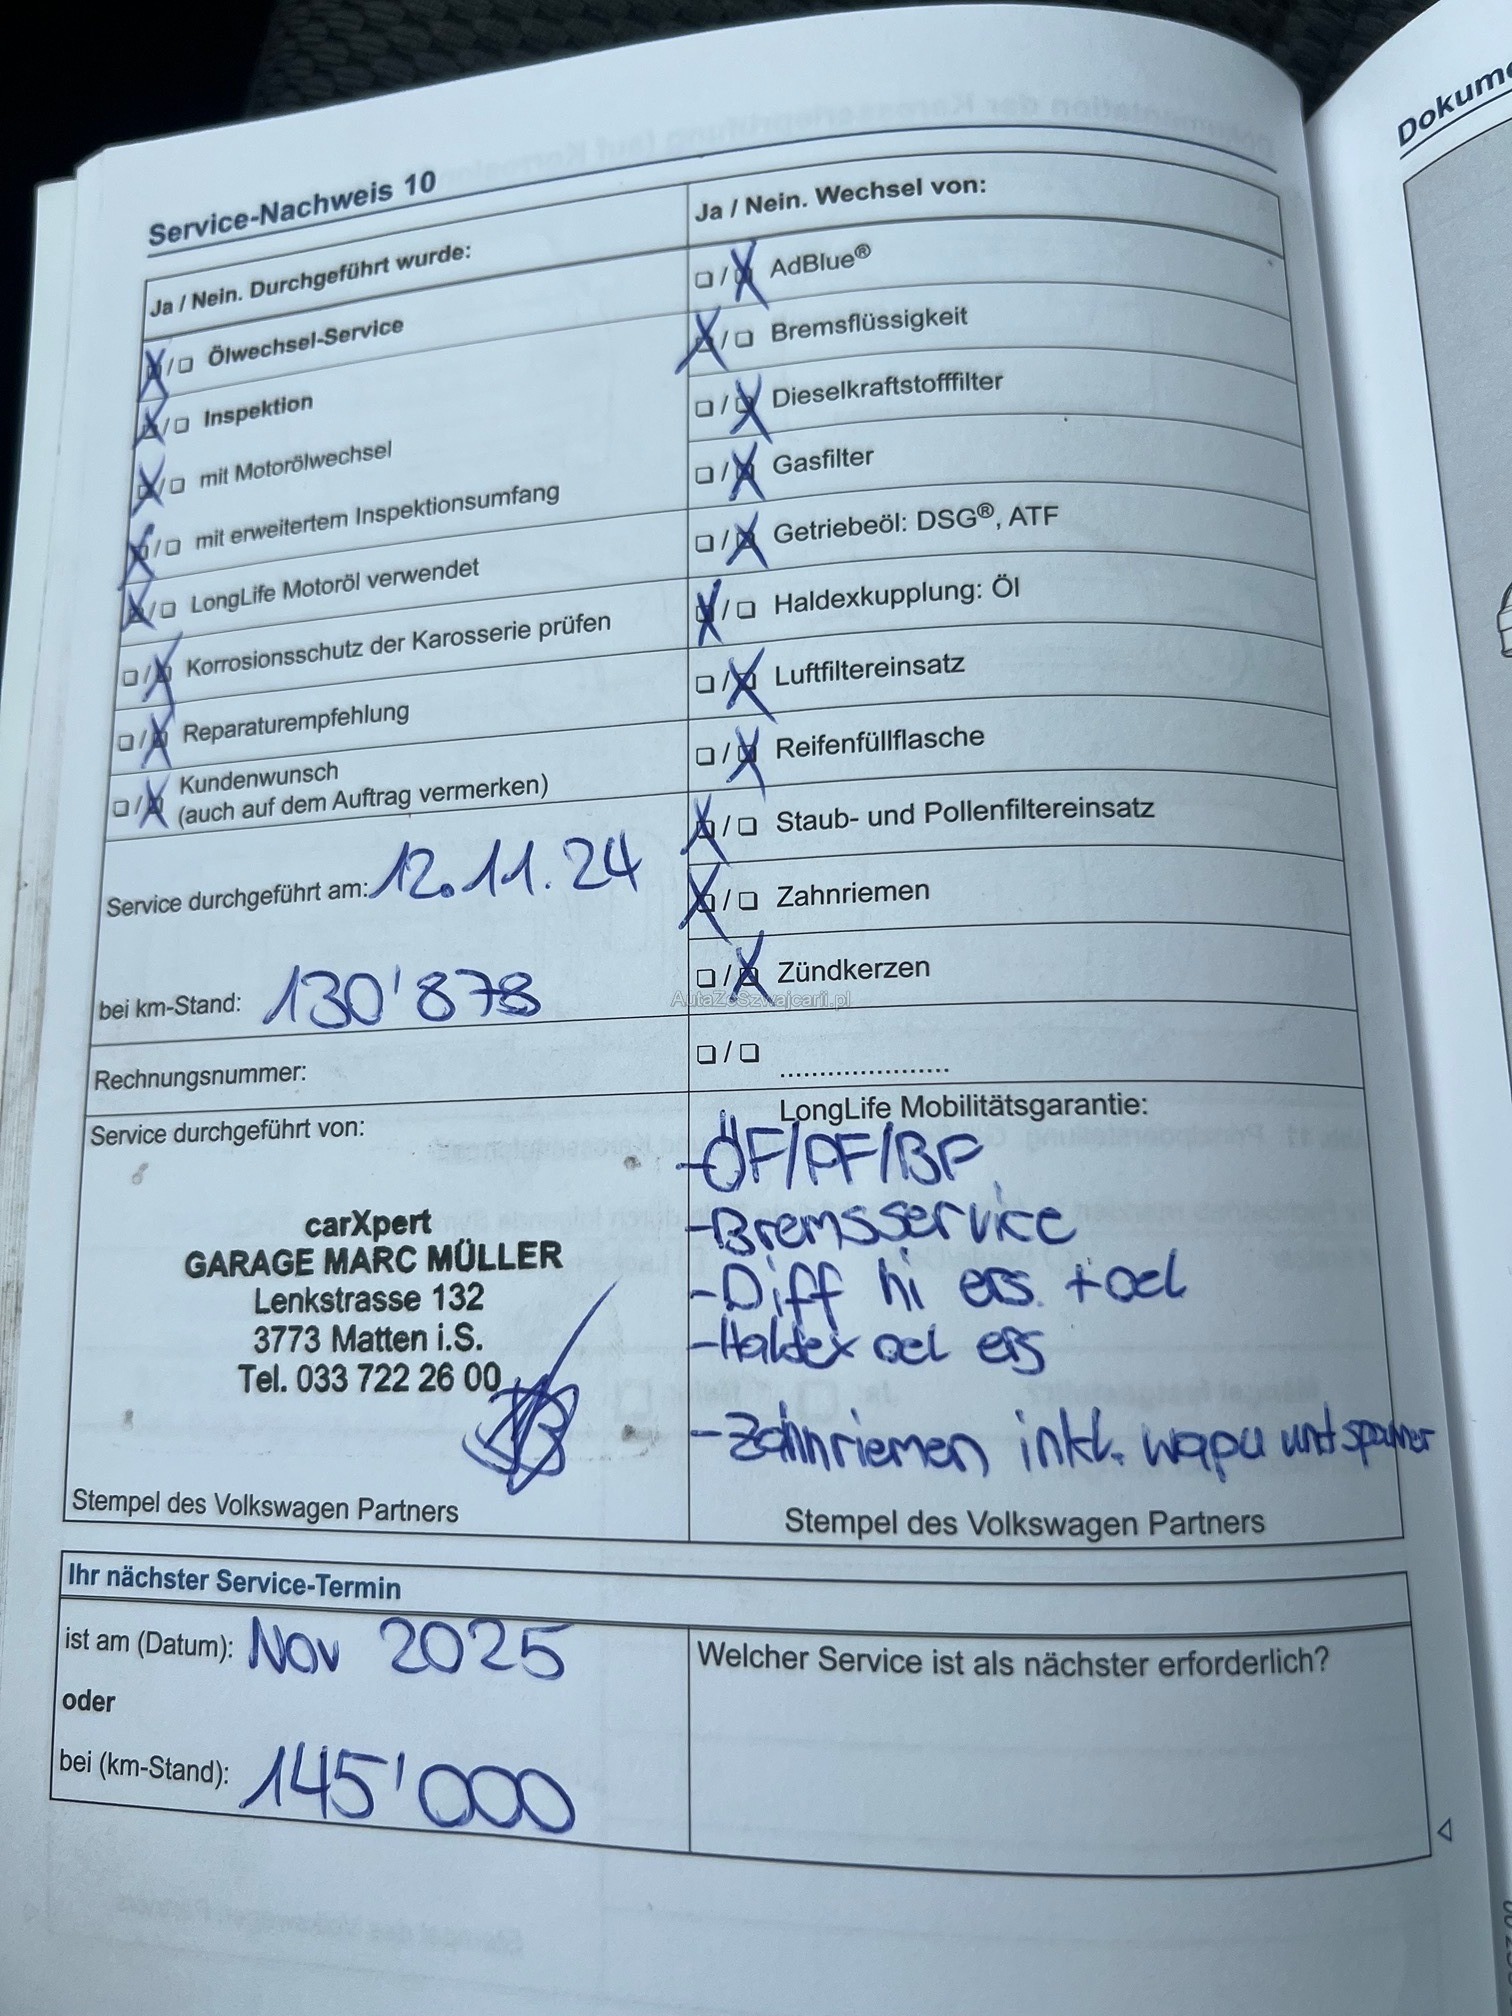 Dokume
Service-Nachweis 10
Ja / Nein. Durchgeführt wurde:
Ölwechsel-Service
Inspektion
mit Motorölwechsel
mit erweitertem Inspektionsumfang
LongLife Motoröl verwendet
Korrosionsschutz der Karosserie prüfen
Reparaturempfehlung
Kundenwunsch
(auch auf dem Auftrag vermerken)
Service durchgeführt am: 12.11.24
bei km-Stand: 130'878
Rechnungsnummer:
Service durchgeführt von:
carXpert
GARAGE MARC MÜLLER
Lenkstrasse 132
3773 Matten i.S.
Tel. 033 722 26 00
Stempel des Volkswagen Partners
Ja / Nein. Wechsel von:
AdBlue®
Bremsflüssigkeit
Dieselkraftstofffilter
Gasfilter
Getriebeöl: DSG®, ATF
Haldexkupplung: Öl
Luftfiltereinsatz
Reifenfüllflasche
Staub- und Pollenfiltereinsatz
Zahnriemen
Zündkerzen
AutaZeSzwajcarii.pl
....................
LongLife Mobilitätsgarantie:
-ÖF/PF/BF
-Bremsservice
-Diff hi ers. + oel
-Haldex oel ers
-Zahnriemen inkl. wapu und spanner
Stempel des Volkswagen Partners
Ihr nächster Service-Termin
ist am (Datum): Nov 2025
oder
bei (km-Stand): 145'000
Welcher Service ist als nächster erforderlich?